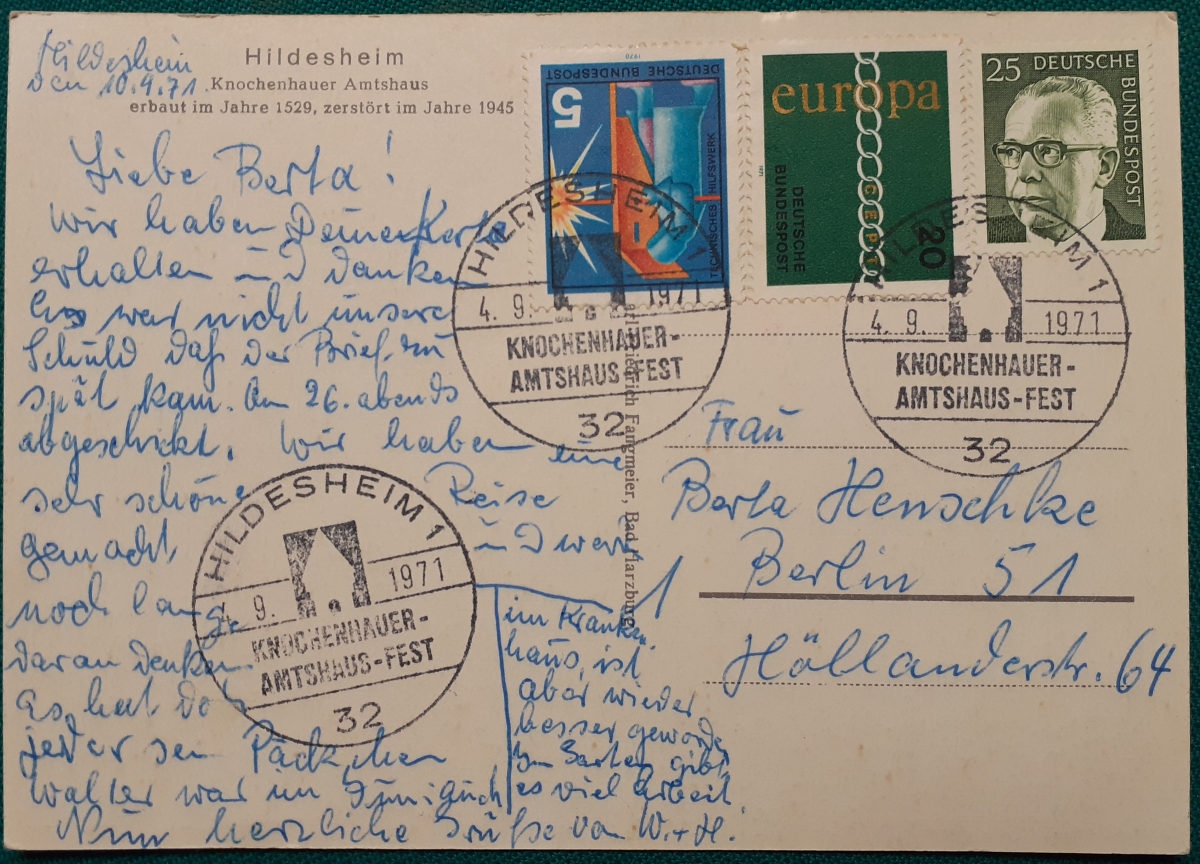 Hildesheim
Knochenhauer Amtshaus
erbaut im Jahre 1529, zerstört im Jahre 1945
Hildesheim
den 10.9.71.
Liebe Berta!
Wir haben Deine Karte
erhalten und danken
Es war nicht unsere
Schuld daß der Brief zu
spät kam. Am 26. abends
abgeschickt. Wir haben eine
sehr schöne Reise
gemacht und werd
noch lange
daran denken.
Es hat doch
jeder sein Päckchen
Walter war im Juni auch
im Kranken
haus, ist
aber wieder
besser geworde
Im Garten gibt
es viel Arbeit.
Nun herzliche Grüße von W. + H.
DEUTSCHE BUNDESPOST
5
1970
TECHNISCHES HILFSWERK
europa
CEPT
DEUTSCHE
BUNDESPOST
20
1971
25 DEUTSCHE
BUNDESPOST
HILDESHEIM 1
4. 9. 1971
KNOCHENHAUER-
AMTSHAUS-FEST
32
HILDESHEIM 1
4. 9. 1971
KNOCHENHAUER-
AMTSHAUS-FEST
32
HILDESHEIM 1
4. 9. 1971
KNOCHENHAUER-
AMTSHAUS-FEST
32
Friedrich Fangmeier, Bad Harzburg
Frau
Berta Henschke
Berlin 51
Holländerstr. 64